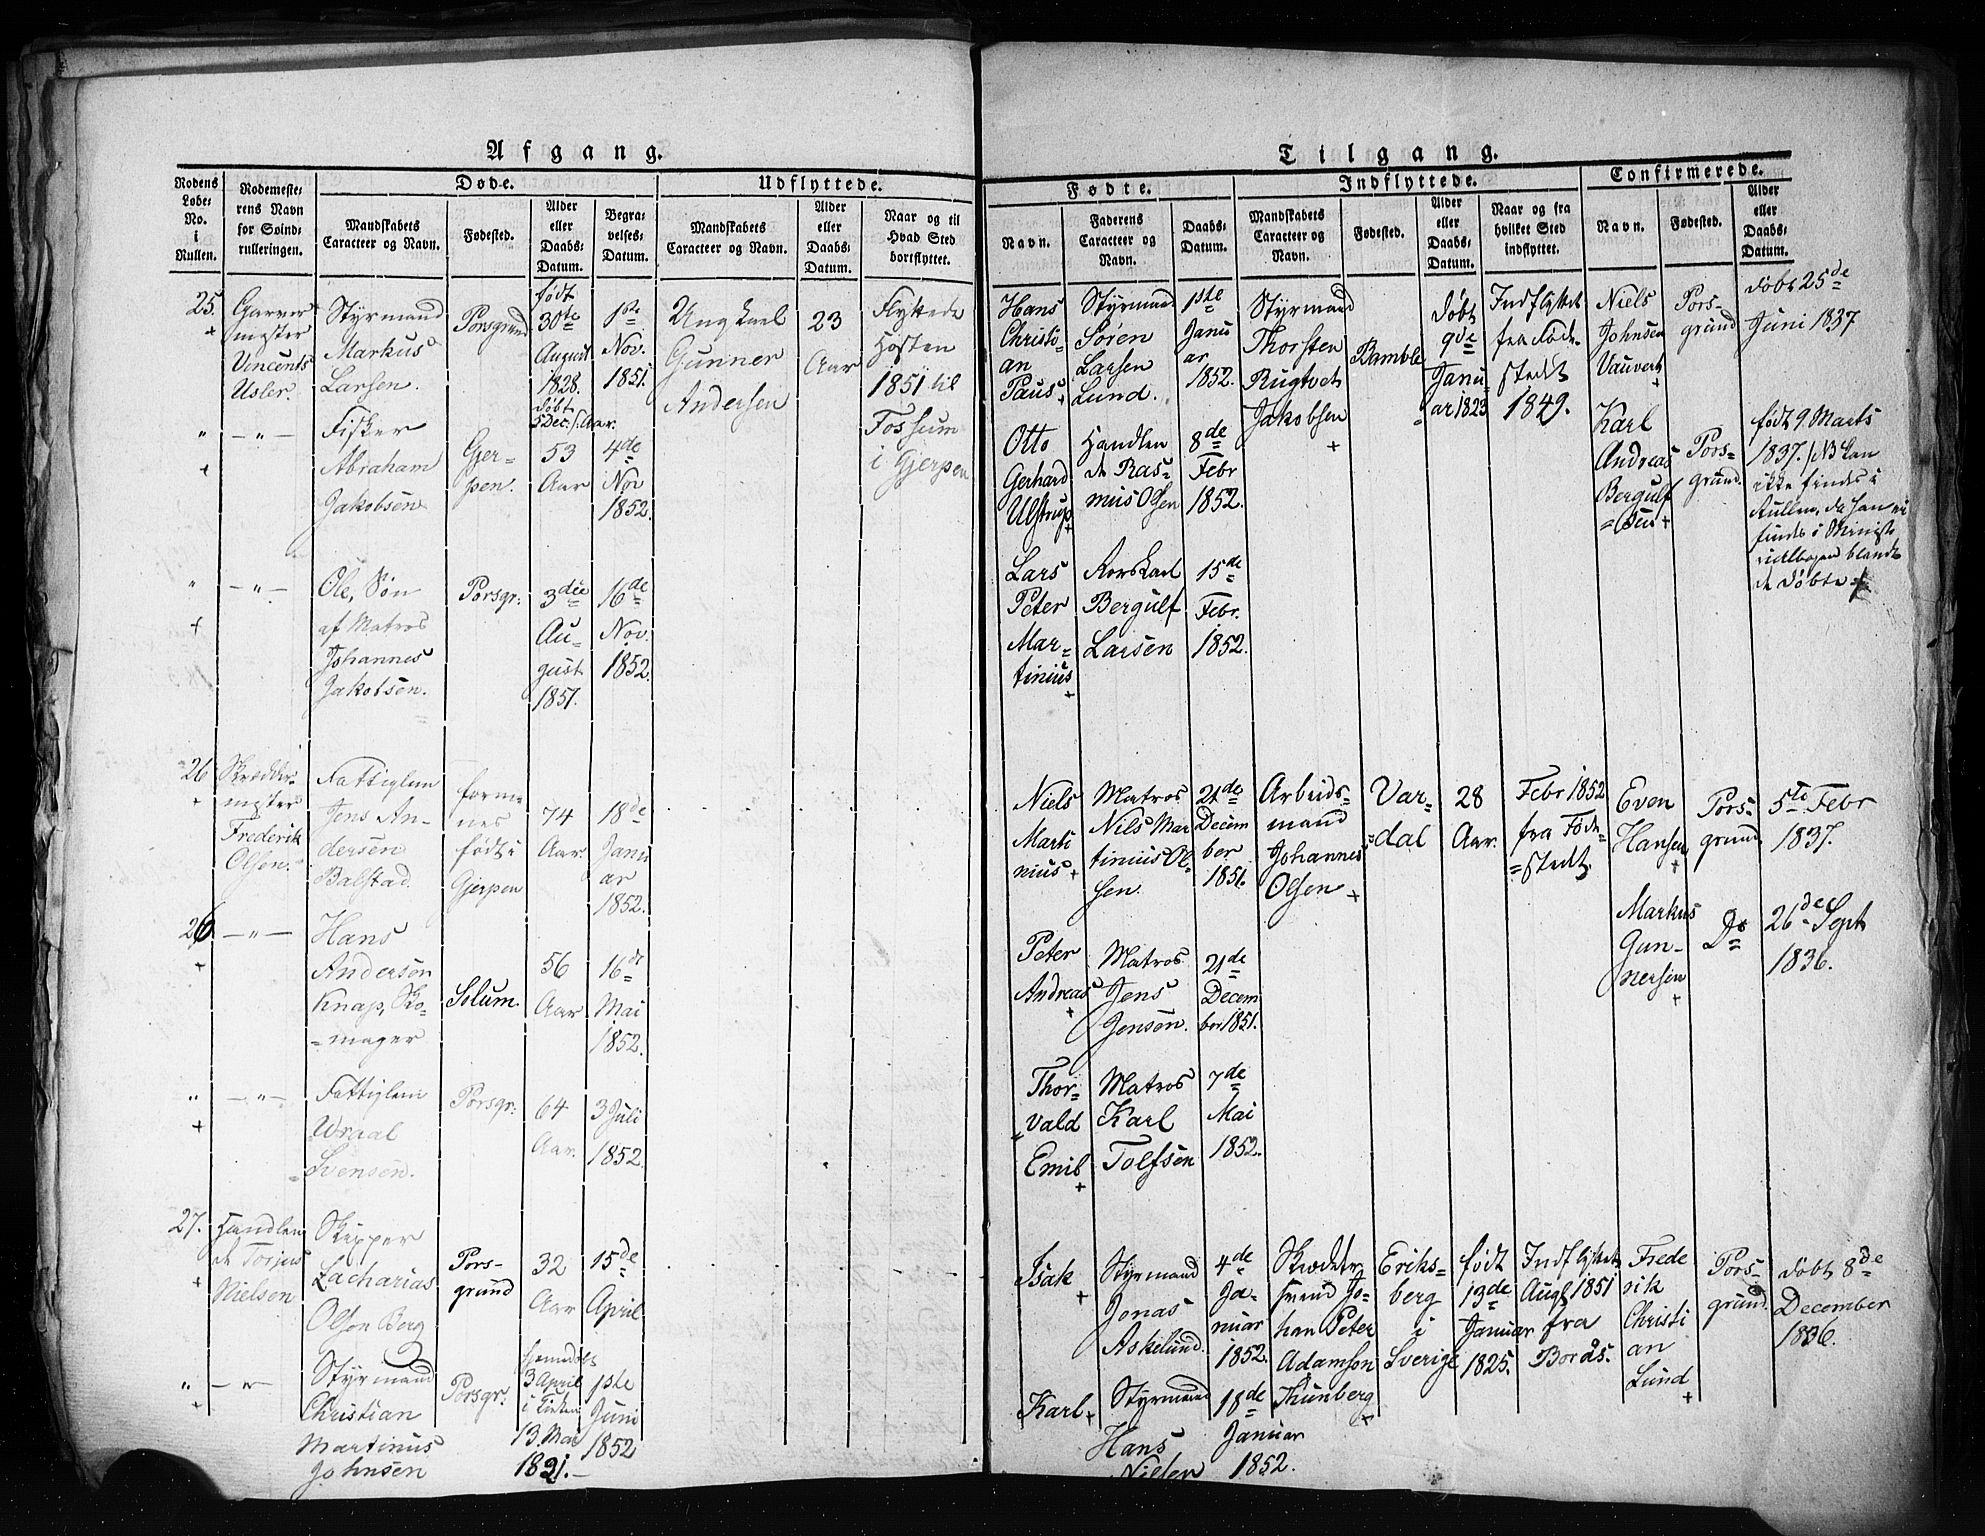 Afgang.
Nodens
Løbe-
No.
i
Rullen.
Rodemeste-
rens Navn
for Søind-
rulleringen.
Døde.
Mandskabets
Caracteer og Navn.
Fødested.
Alder
eller
Daabs-
Datum.
Begra-
velses-
Datum.
Udflyttede.
Mandskabets
Caracteer og Navn.
Alder
eller
Daabs-
Datum.
Naar og til
Hvad Sted
bortflyttet.
25.
+
Garver
mester
Vincents
Usler.
Styrmand
Markus
Larsen.
Porsgrund
født
30te
August
1828.
døbt
5 Dec. s. Aar.
1ste
Nov.
1851.
Ungkarl
Gunner
Andersen
23
Aar
Flyttede
Høsten
1851 til
Fossum
i Gjerpen
"
+
— " —
Fisker
Abraham
Jakobsen
Gjer-
pen.
53
Aar
4de
Nov
1852.
"
+
— " —
Ole, Søn
af Matros
Johannes
Jakobsen.
Porsgr:
3die
Au-
gust
1851.
16de
Nov.
1852.
26
+
Skrædder-
mester
Frederik
Olsen.
Fattiglem
Jens An-
dersen
Balstad.
forme-
nes
født i
Gjerpen
74
Aar.
18de
Janu
ar
1852.
26.
+
— " —
Hans
Andersen
Knap, Sko-
=mager
Solum.
56
Aar
16de
Mai
1852.
"
+
— " —
Fattiglem
Wraal
Svensen.
Porsgr:
64
Aar.
3 Juli
1852.
27.
+
Handlen
de Torjus
Nielsen
Skipper
Zacharias
Olsen Berg
Pors-
grund
32
Aar
15de
April
"
+
— " —
Styrmand
Christian
Martinus
Johnsen
Porsgr:
hjemdøbt
3 April
i Kirken
13. Mai
1821.—
1ste
Juni
1852
Tilgang.
Fødte.
Navn.
Faderens
Caracteer og
Navn.
Daabs-
Datum.
Indflyttede.
Mandskabets
Caracteer og
Navn.
Fødested.
Alder
eller
Daabs-
Datum.
Naar og fra
hvilket Sted
indflyttet.
Confirmerede.
Navn.
Fødested.
Alder
eller
Daabs-
Datum.
Hans
Christi-
an
Paus +
Styrmand
Søren
Larsen
Lund.
1ste
Janu
ar
1852.
Styrmand
Thorsten
Rugtvet
Jakobsen
+
Bamble
døbt
9de
Janu-
ar 1823
Indflyttet
fra Føde-
stedet
1849.
Niels
Johnsen
Vauvert
+
Pors-
grund
døbt 25de
Juni 1837
Otto
Gerhard
Ulstrup
+
Handlen
de Ras-
mus Olsen
8de
Febr
1852.
Karl
Andreas
Bergulf
=sen +
Pors-
grund.
født 9. Marts
1837. / NB kan
ikke findes i
Rullen, da han ei
findes i Ministe
rialbogen blandt
de døbte +
Lars
Peter
Mar-
tinius
+
Korskarl
Bergulf
Larsen
15de
Febr.
1852.
Niels
Marti
nius +
Matros
Nils Mar
tinius Ol-
sen.
21de
Decem
ber
1851.
Arbeids-
mand
Johannes
Olsen +
Var-
=dal
28
Aar.
Febr 1852
fra Føde-
=stedet.
Even
Hansen
+
Pors-
grund
5te Febr
1837.
Markus
Gun-
nersen
+
Do
26de Sept
1836.
Peter
Andreas
+
Matros
Jens
Jensen.
21de
Decem
ber 1851.
Thor-
vald
Emil
+
Matros
Karl
Tolfsen
7de
Mai
1852.
Isak
+
Styrmand
Jonas
Askelund.
4de
Ja-
nuar
1852.
Skrædder
svend Jo-
han Peter
Adamson
Thunberg
+
Eriks-
berg
i
Sverige
født
13de
Januar
1825.
Indflyttet
Augs 1851
fra
Borås.
Frede
rik
Christi
an
Lund
+
Pors-
grund.
døbt 8de
December
1836.
Karl +
Styrmand
Hans
Nielsen
18de
Januar
1852.